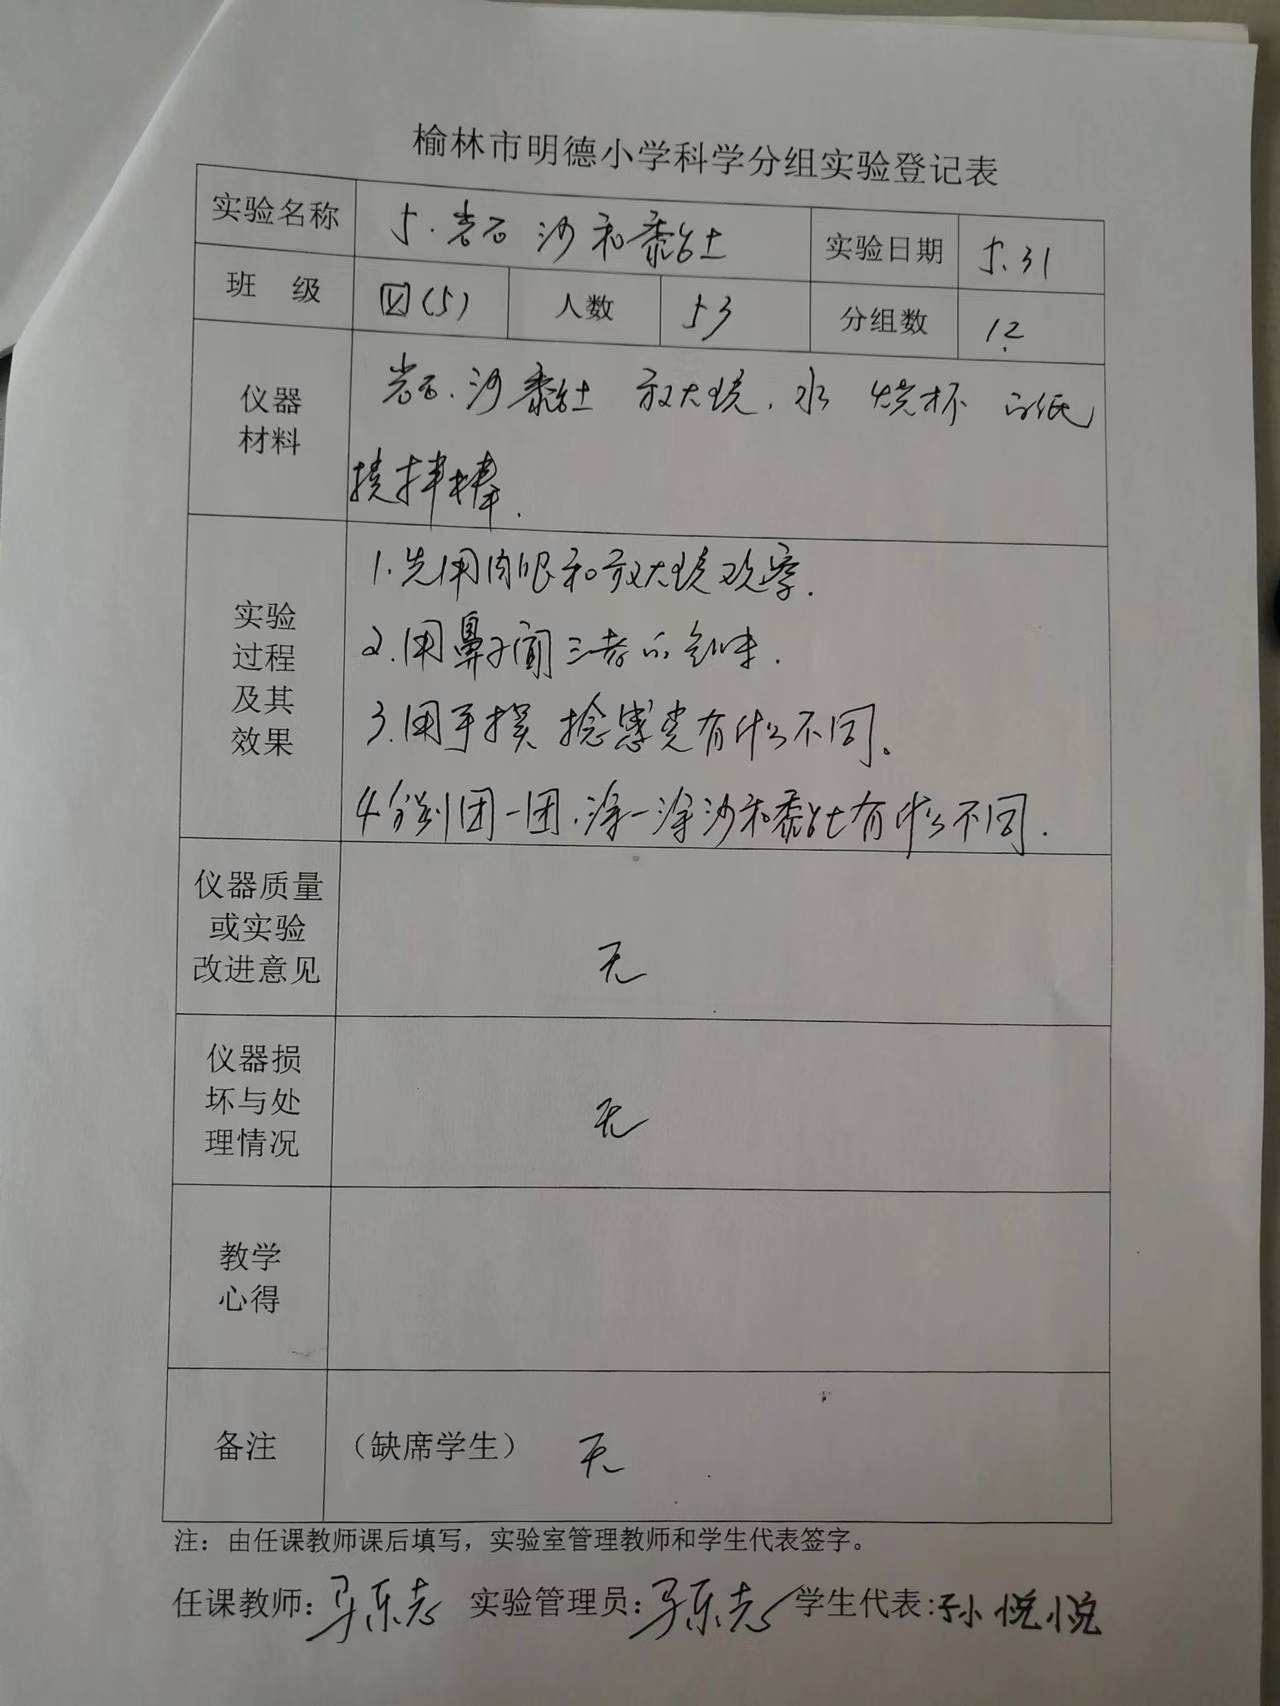 榆林市明德小学科学分组实验登记表
实验名称 5.岩石 沙和黏土 实验日期 5.31
班 级 四(5) 人数 53 分组数 12
仪器
材料
岩石.沙黏土 放大镜.水 烧杯 白纸
搅拌棒.
实验
过程
及其
效果
1.先用肉眼和放大镜观察.
2.用鼻子闻三者的气味.
3.用手摸 捻感觉有什么不同。
4分别团一团.涂一涂沙和黏土有什么不同.
仪器质量
或实验
改进意见
无
仪器损
坏与处
理情况
无
教学
心得
备注 （缺席学生） 无
注：由任课教师课后填写，实验室管理教师和学生代表签字。
任课教师:马乐志 实验管理员:马乐志 学生代表:孙悦悦